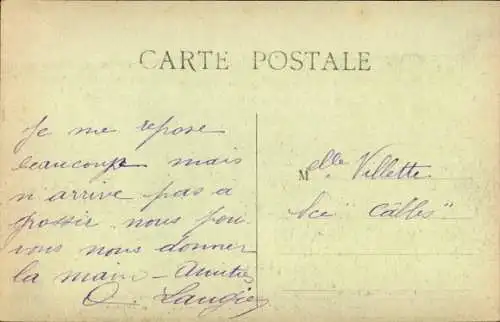 CARTE POSTALE
Je me repose
beaucoup mais
n'arrive pas à
grossir nous pou-
vons nous donner
la main - Amitiés
O. Laugier
Melle Villette
Sce "Câbles"